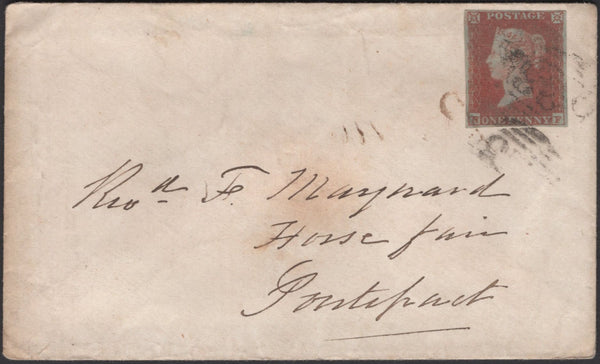 POSTAGE
ONE PENNY
Revd F. Maynard
Horse fair
Pontefract